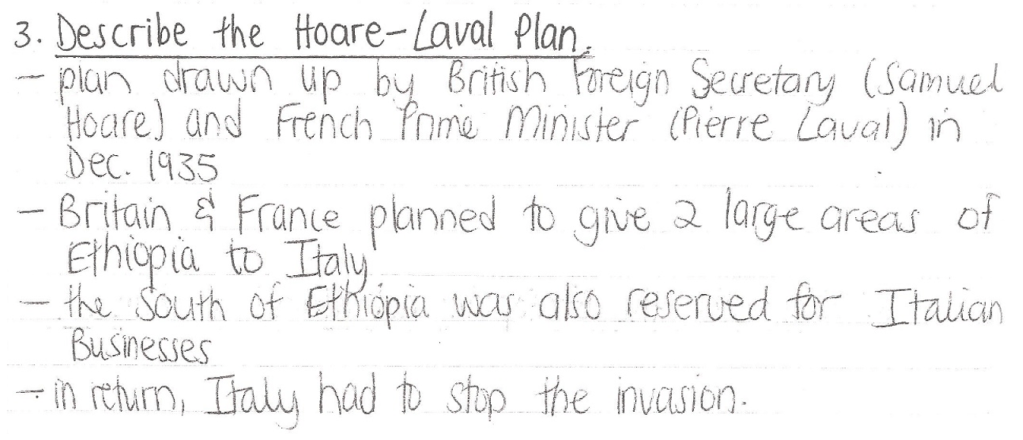 3. Describe the Hoare-Laval Plan.
- plan drawn up by British Foreign Secretary (Samuel
Hoare) and French Prime Minister (Pierre Laval) in
Dec. 1935
- Britain & France planned to give 2 large areas of
Ethiopia to Italy
- the South of Ethiopia was also reserved for Italian
Businesses
- in return, Italy had to stop the invasion.